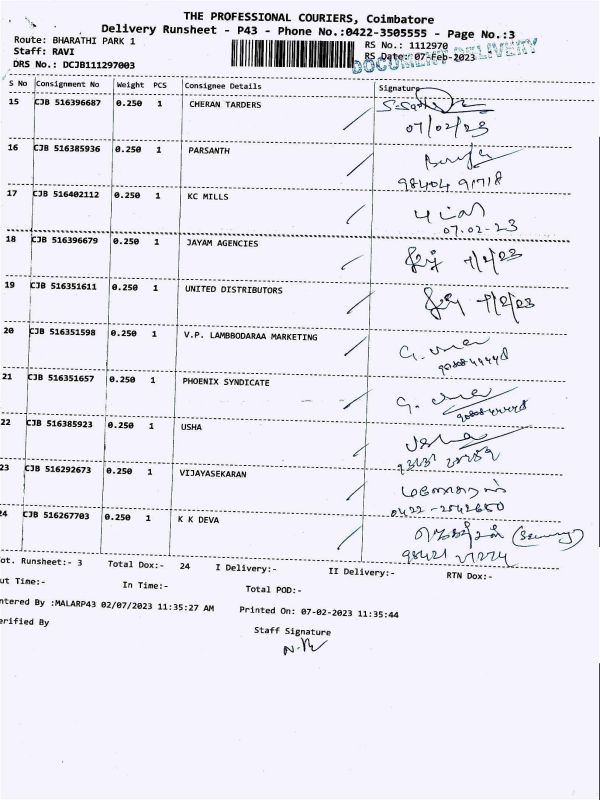 THE PROFESSIONAL COURIERS, Coimbatore
Delivery Runsheet - P43 - Phone No.:0422-3505555 - Page No.:3
Route: BHARATHI PARK 1
RS No.: 1112970
Staff: RAVI
RS Date: 07-Feb-2023
DOCUMENT DELIVERY
DRS No.: DCJB111297003
S No Consignment No Weight PCS Consignee Details Signature
15 CJB 516396687 0.250 1 CHERAN TARDERS
07/02/23
16 CJB 516385936 0.250 1 PARSANTH
98404 91718
17 CJB 516402112 0.250 1 KC MILLS
07.02.23
18 CJB 516396679 0.250 1 JAYAM AGENCIES 7/2/23
19 CJB 516351611 0.250 1 UNITED DISTRIBUTORS 7/2/23
20 CJB 516351598 0.250 1 V.P. LAMBBODARAA MARKETING
21 CJB 516351657 0.250 1 PHOENIX SYNDICATE
22 CJB 516385923 0.250 1 USHA Usha
23 CJB 516292673 0.250 1 VIJAYASEKARAN
0422-2542650
24 CJB 516267703 0.250 1 K K DEVA
ot. Runsheet:- 3 Total Dox:- 24 I Delivery:- II Delivery:- RTN Dox:-
ut Time:- In Time:- Total POD:-
ntered By :MALARP43 02/07/2023 11:35:27 AM Printed On: 07-02-2023 11:35:44
erified By Staff Signature